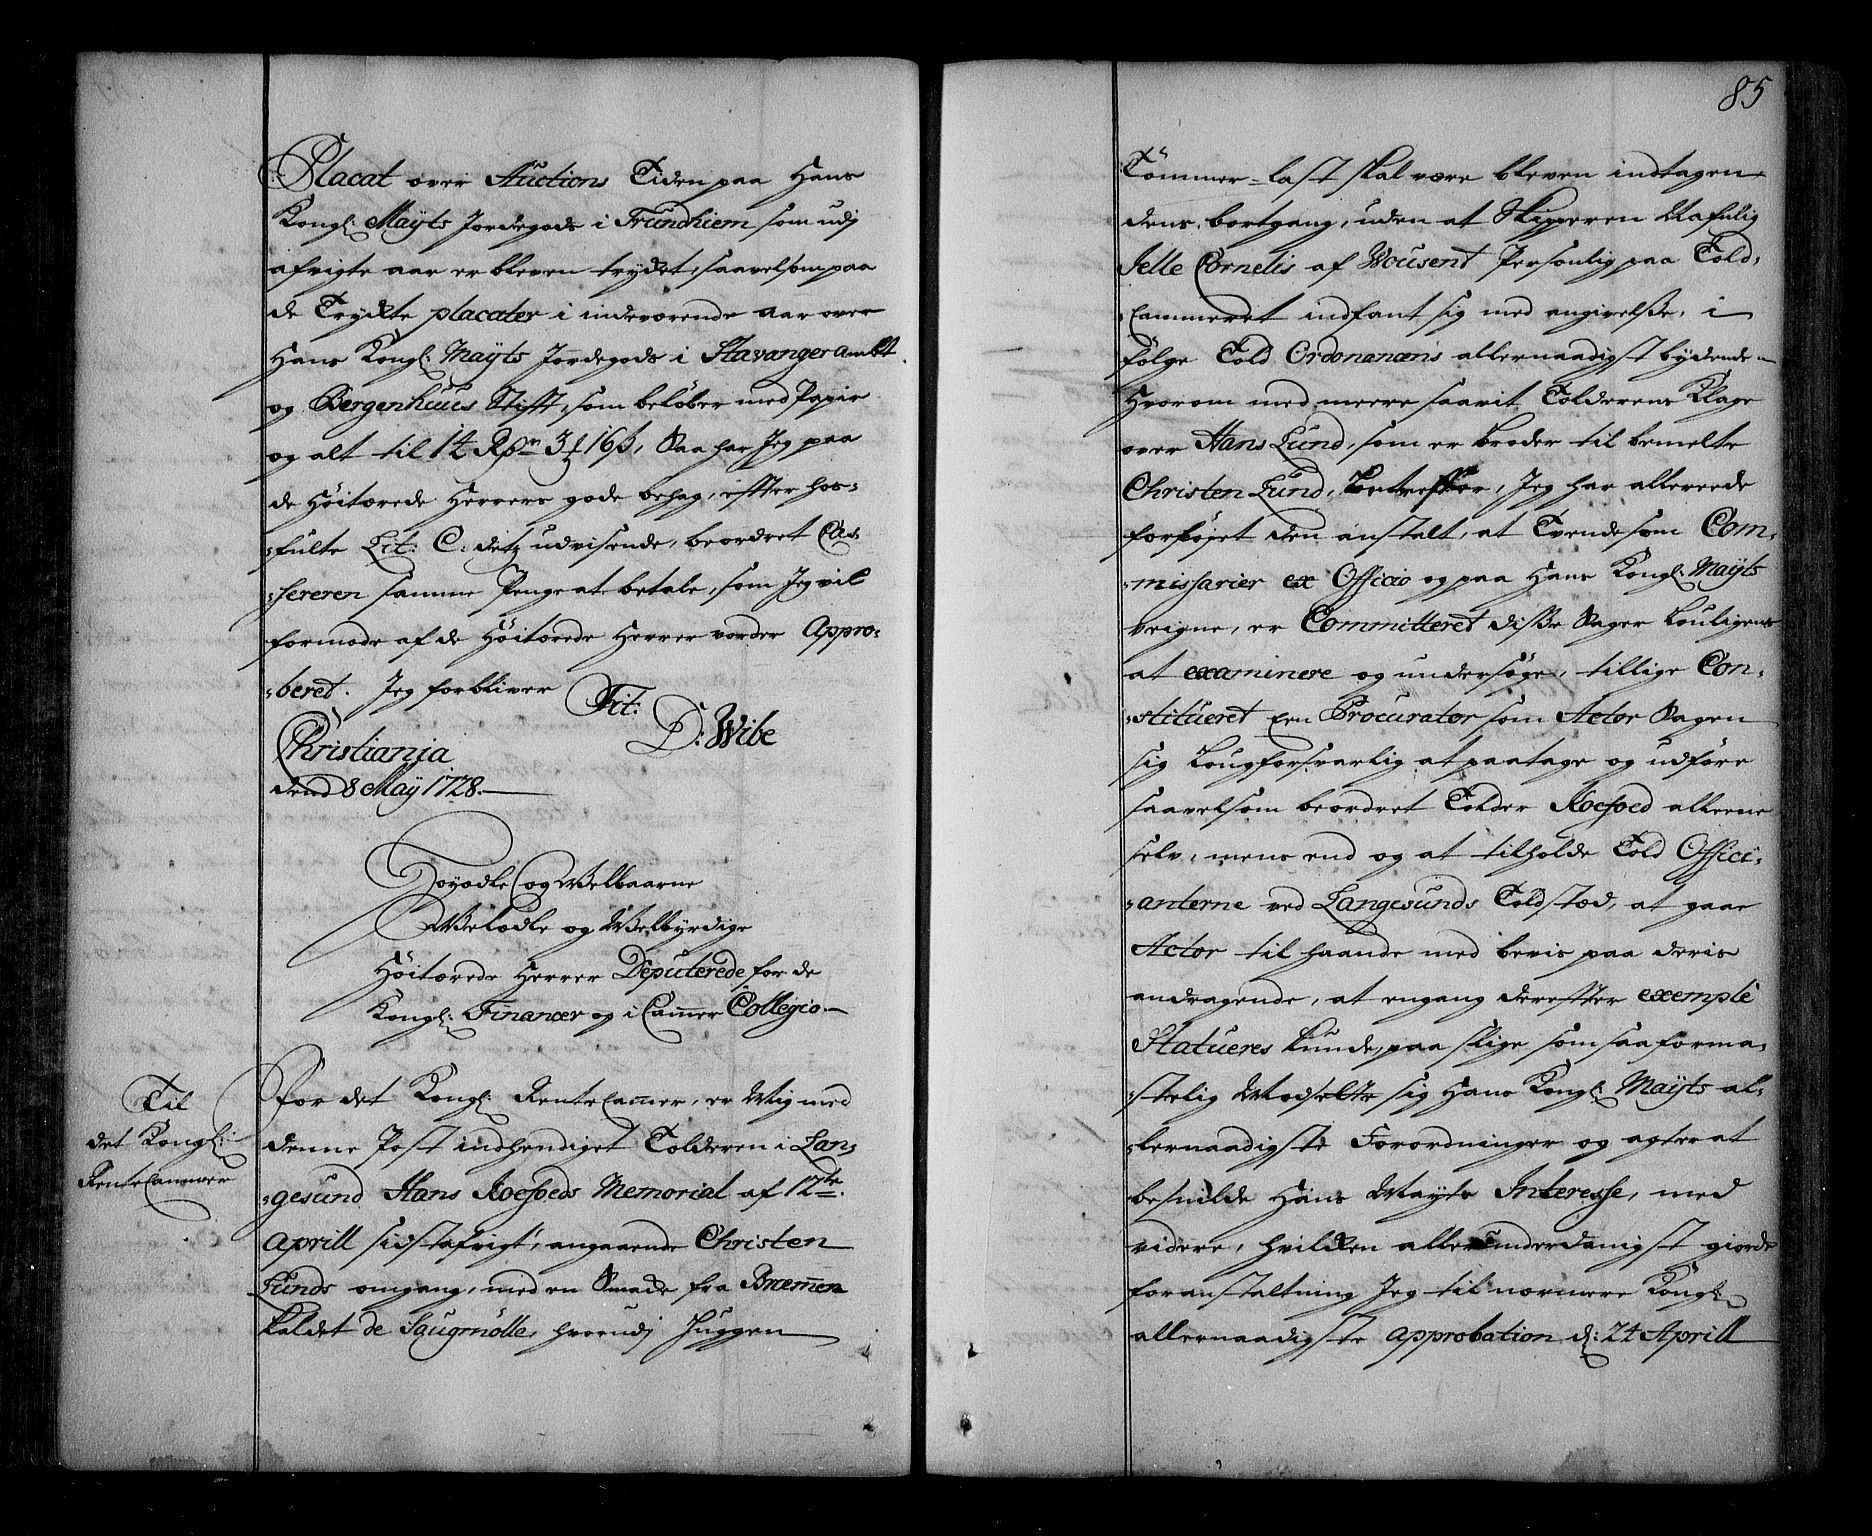 Placat over Auctions Tiden paa Hans
Kongl: Mayts Jordegods i Trundhiem som udj
afvigte aar er bleven trykt, saavelsom paa
de Trykte placater i indeværende aar over
Hans Kongl: Mayts Jordegods i Stavanger ambt
og Bergenhuus Stift, som beløber med Papir
og alt til 14 Rdr 3 ƒ 16 ß, Saa har Jeg paa
de Høitærede Herrers gode behag, effter hos-
-fulte Lit: C. detz udvisende, beordret Cas-
-sereren samme Penge at betale, som Jeg vil
formode af de Høitærede Herrer vorder Appro-
-beret. Jeg forbliver
Tit:
D: Wibe
Christiania
dend 8 May 1728.
Høyædle og Welbaarne
Welædle og Welbyrdige
Høitærede Herrer Deputerede for de
Kongl: Financer og i Cammer Collegio
Til
det Kongl:
RenteCammer
For det Kongl: RenteCammer, er Mig med
denne Post indhendiget Tolderen i Lan-
-gesund Hans Roesoeds Memorial af 12te
Aprill sidstafvigt, angaaende Christen
Lunds omgang, med en Smade fra Bræmmen
kaldet de Saugmølle, hvorudj Huggen
85
Tömmer-last skal være bleven indtagen
dens bortgang, uden at Skipperen Nafnlig
Jelle Cornelis af Wousent Personlig paa Told-
-Cammeret indfant sig med angivelse, i
følge Told Ordonancens allernaadigst bydende
Hvorom med meere saavit Tolderens Klage
over Hans Lund, som er broder til bemelte
Christen Lund, Betreffer, Jeg har allereede
forføjet den anstalt, at Tvende som Com-
-missarier ex Officio og paa Hans Kongl: Mayts
veigne, er Committeret disse Sager Louligens
at examinere og undersøge, tillige Con-
-stitueret een Procurator som Actor Sagen
sig Lougforsvarlig at paatage og udføre
saavelsom beordret Tolder Roesoed alleene
selv, mens end og at tilholde Told Offici-
-anterne ved Langesunds Toldstæd, at gaae
Actor til haande med bevis paa deris
andragende, at engang derefter exempel
Statueres kunde, paa slige som saa forma-
-stelig Modsette sig Hans Kongl: Mayts al-
-lernaadigste Forordninger og agter at
besnilde Hans Mayts Interesse, med
videre, hvilken allerunderdanigst giorde
foranstaltning Jeg til nærmere Kongl:
allernaadigste approbation d: 24 Aprill